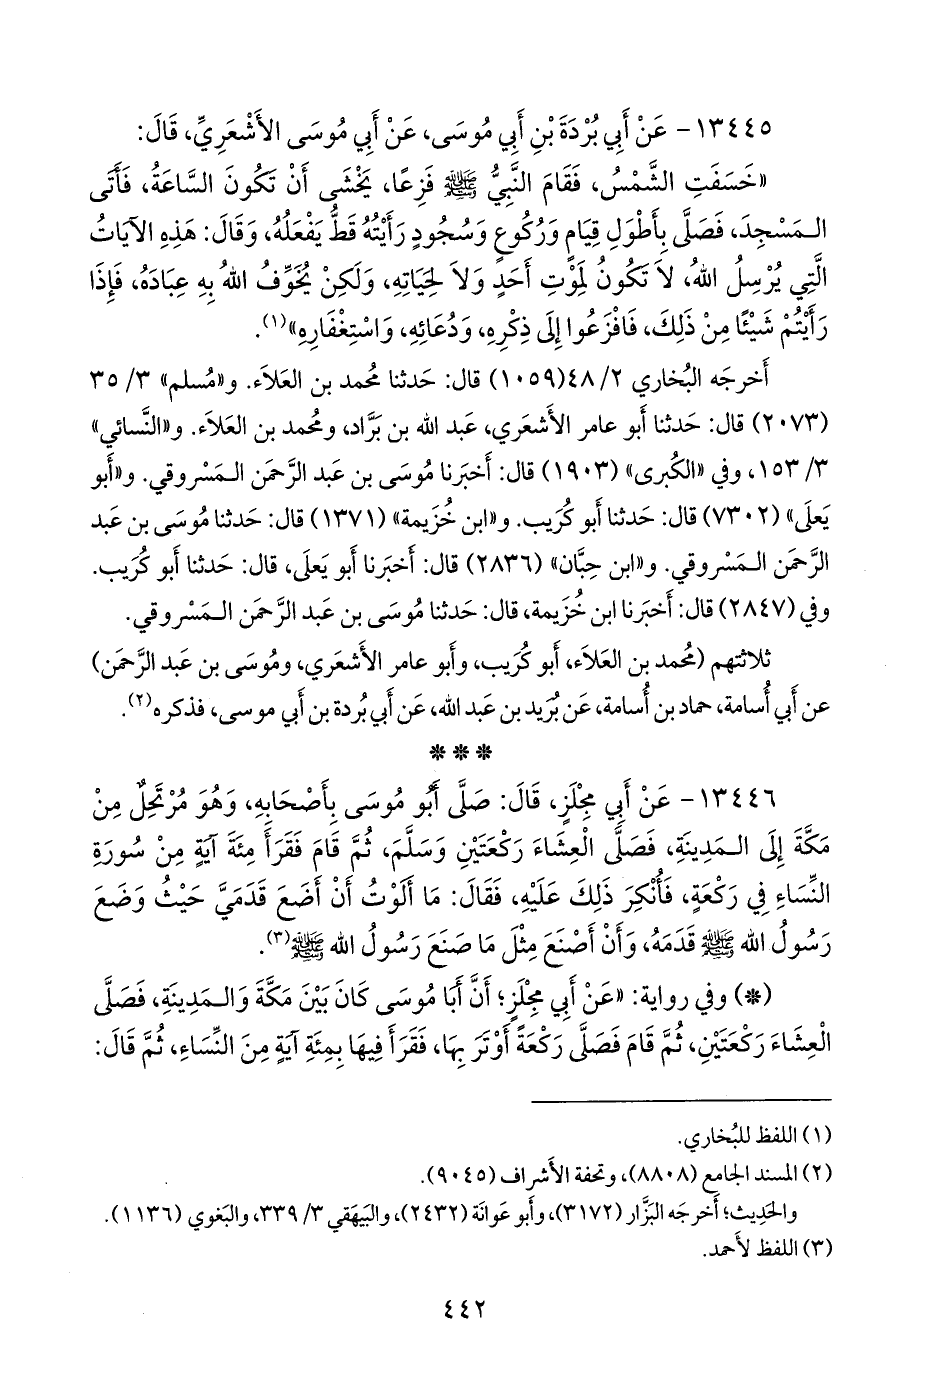 ١٣٤٤٥- عَنْ أَبِي بُرْدَةَ بْنِ أَبِي مُوسَى، عَنْ أَبِي مُوسَى الأَشْعَرِيِّ، قَالَ:
«خَسَفَتِ الشَّمْسُ، فَقَامَ النَّبِيُّ ﷺ فَزِعًا، يَخْشَى أَنْ تَكُونَ السَّاعَةُ، فَأَتَى
الـمَسْجِدَ، فَصَلَّى بِأَطْوَلِ قِيَامٍ وَرُكُوعٍ وَسُجُودٍ رَأَيْتُهُ قَطُّ يَفْعَلُهُ، وَقَالَ: هَذِهِ الآيَاتُ
الَّتِي يُرْسِلُ اللهُ، لاَ تَكُونُ لِمَوْتِ أَحَدٍ وَلاَ لِحَيَاتِهِ، وَلَكِنْ يُخَوِّفُ اللهُ بِهِ عِبَادَهُ، فَإِذَا
رَأَيْتُمْ شَيْئًا مِنْ ذَلِكَ، فَافْزَعُوا إِلَى ذِكْرِهِ، وَدُعَائِهِ، وَاسْتِغْفَارِهِ»(١).
أَخرجَه البُخاري ٢/ ٤٨(١٠٥٩) قال: حَدثنا مُحمد بن العَلاَء. و«مُسلم» ٣/ ٣٥
(٢٠٧٣) قال: حَدثنا أَبو عامر الأَشعري، عَبد الله بن بَرَّاد، ومُحمد بن العَلاَء. و«النَّسائي»
٣/ ١٥٣، وفي «الكُبرى» (١٩٠٣) قال: أَخبَرنا مُوسَى بن عَبد الرَّحمَن الـمَسْروقي. و«أَبو
يَعلَى» (٧٣٠٢) قال: حَدثنا أَبو كُرَيب. و«ابن خُزيمة» (١٣٧١) قال: حَدثنا مُوسَى بن عَبد
الرَّحمَن الـمَسْروقي. و«ابن حِبَّان» (٢٨٣٦) قال: أَخبَرنا أَبو يَعلَى، قال: حَدثنا أَبو كُرَيب.
وفي (٢٨٤٧) قال: أَخبَرنا ابن خُزيمة، قال: حَدثنا مُوسَى بن عَبد الرَّحمَن الـمَسْروقي.
ثلاثتهم (مُحمد بن العَلاَء، أَبو كُرَيب، وأَبو عامر الأَشعري، ومُوسَى بن عَبد الرَّحمَن)
عن أَبي أُسامة، حماد بن أُسامة، عَن بُرَيد بن عَبد الله، عَن أَبي بُردة بن أَبي موسى، فذكره(٢).
* * *
١٣٤٤٦- عَنْ أَبِي مِجْلَزٍ، قَالَ: صَلَّى أَبُو مُوسَى بِأَصْحَابِهِ، وَهُوَ مُرْتَحِلٌ مِنْ
مَكَّةَ إِلَى الـمَدِينَةِ، فَصَلَّى الْعِشَاءَ رَكْعَتَيْنِ وَسَلَّمَ، ثُمَّ قَامَ فَقَرَأَ مِئَةَ آيَةٍ مِنْ سُورَةِ
النِّسَاءِ فِي رَكْعَةٍ، فَأُنْكِرَ ذَلِكَ عَلَيْهِ، فَقَالَ: مَا أَلَوْتُ أَنْ أَضَعَ قَدَمَيَّ حَيْثُ وَضَعَ
رَسُولُ الله ﷺ قَدَمَهُ، وَأَنْ أَصْنَعَ مِثْلَ مَا صَنَعَ رَسُولُ الله ﷺ(٣).
(*) وفي رواية: «عَنْ أَبِي مِجْلَزٍ؛ أَنَّ أَبَا مُوسَى كَانَ بَيْنَ مَكَّةَ وَالـمَدِينَةِ، فَصَلَّى
الْعِشَاءَ رَكْعَتَيْنِ، ثُمَّ قَامَ فَصَلَّى رَكْعَةً أَوْتَرَ بِهَا، فَقَرَأَ فِيهَا بِمِئَةِ آيَةٍ مِنَ النِّسَاءِ، ثُمَّ قَالَ:
(١) اللفظ للبُخاري.
(٢) المسند الجامع (٨٨٠٨)، وتحفة الأشراف (٩٠٤٥).
والحَديث؛ أخرجَه البَزَّار (٣١٧٢)، وأَبو عَوانَة (٢٤٣٢)، والبَيهَقي ٣/ ٣٣٩، والبَغوي (١١٣٦).
(٣) اللفظ لأَحمد.
٤٤٢